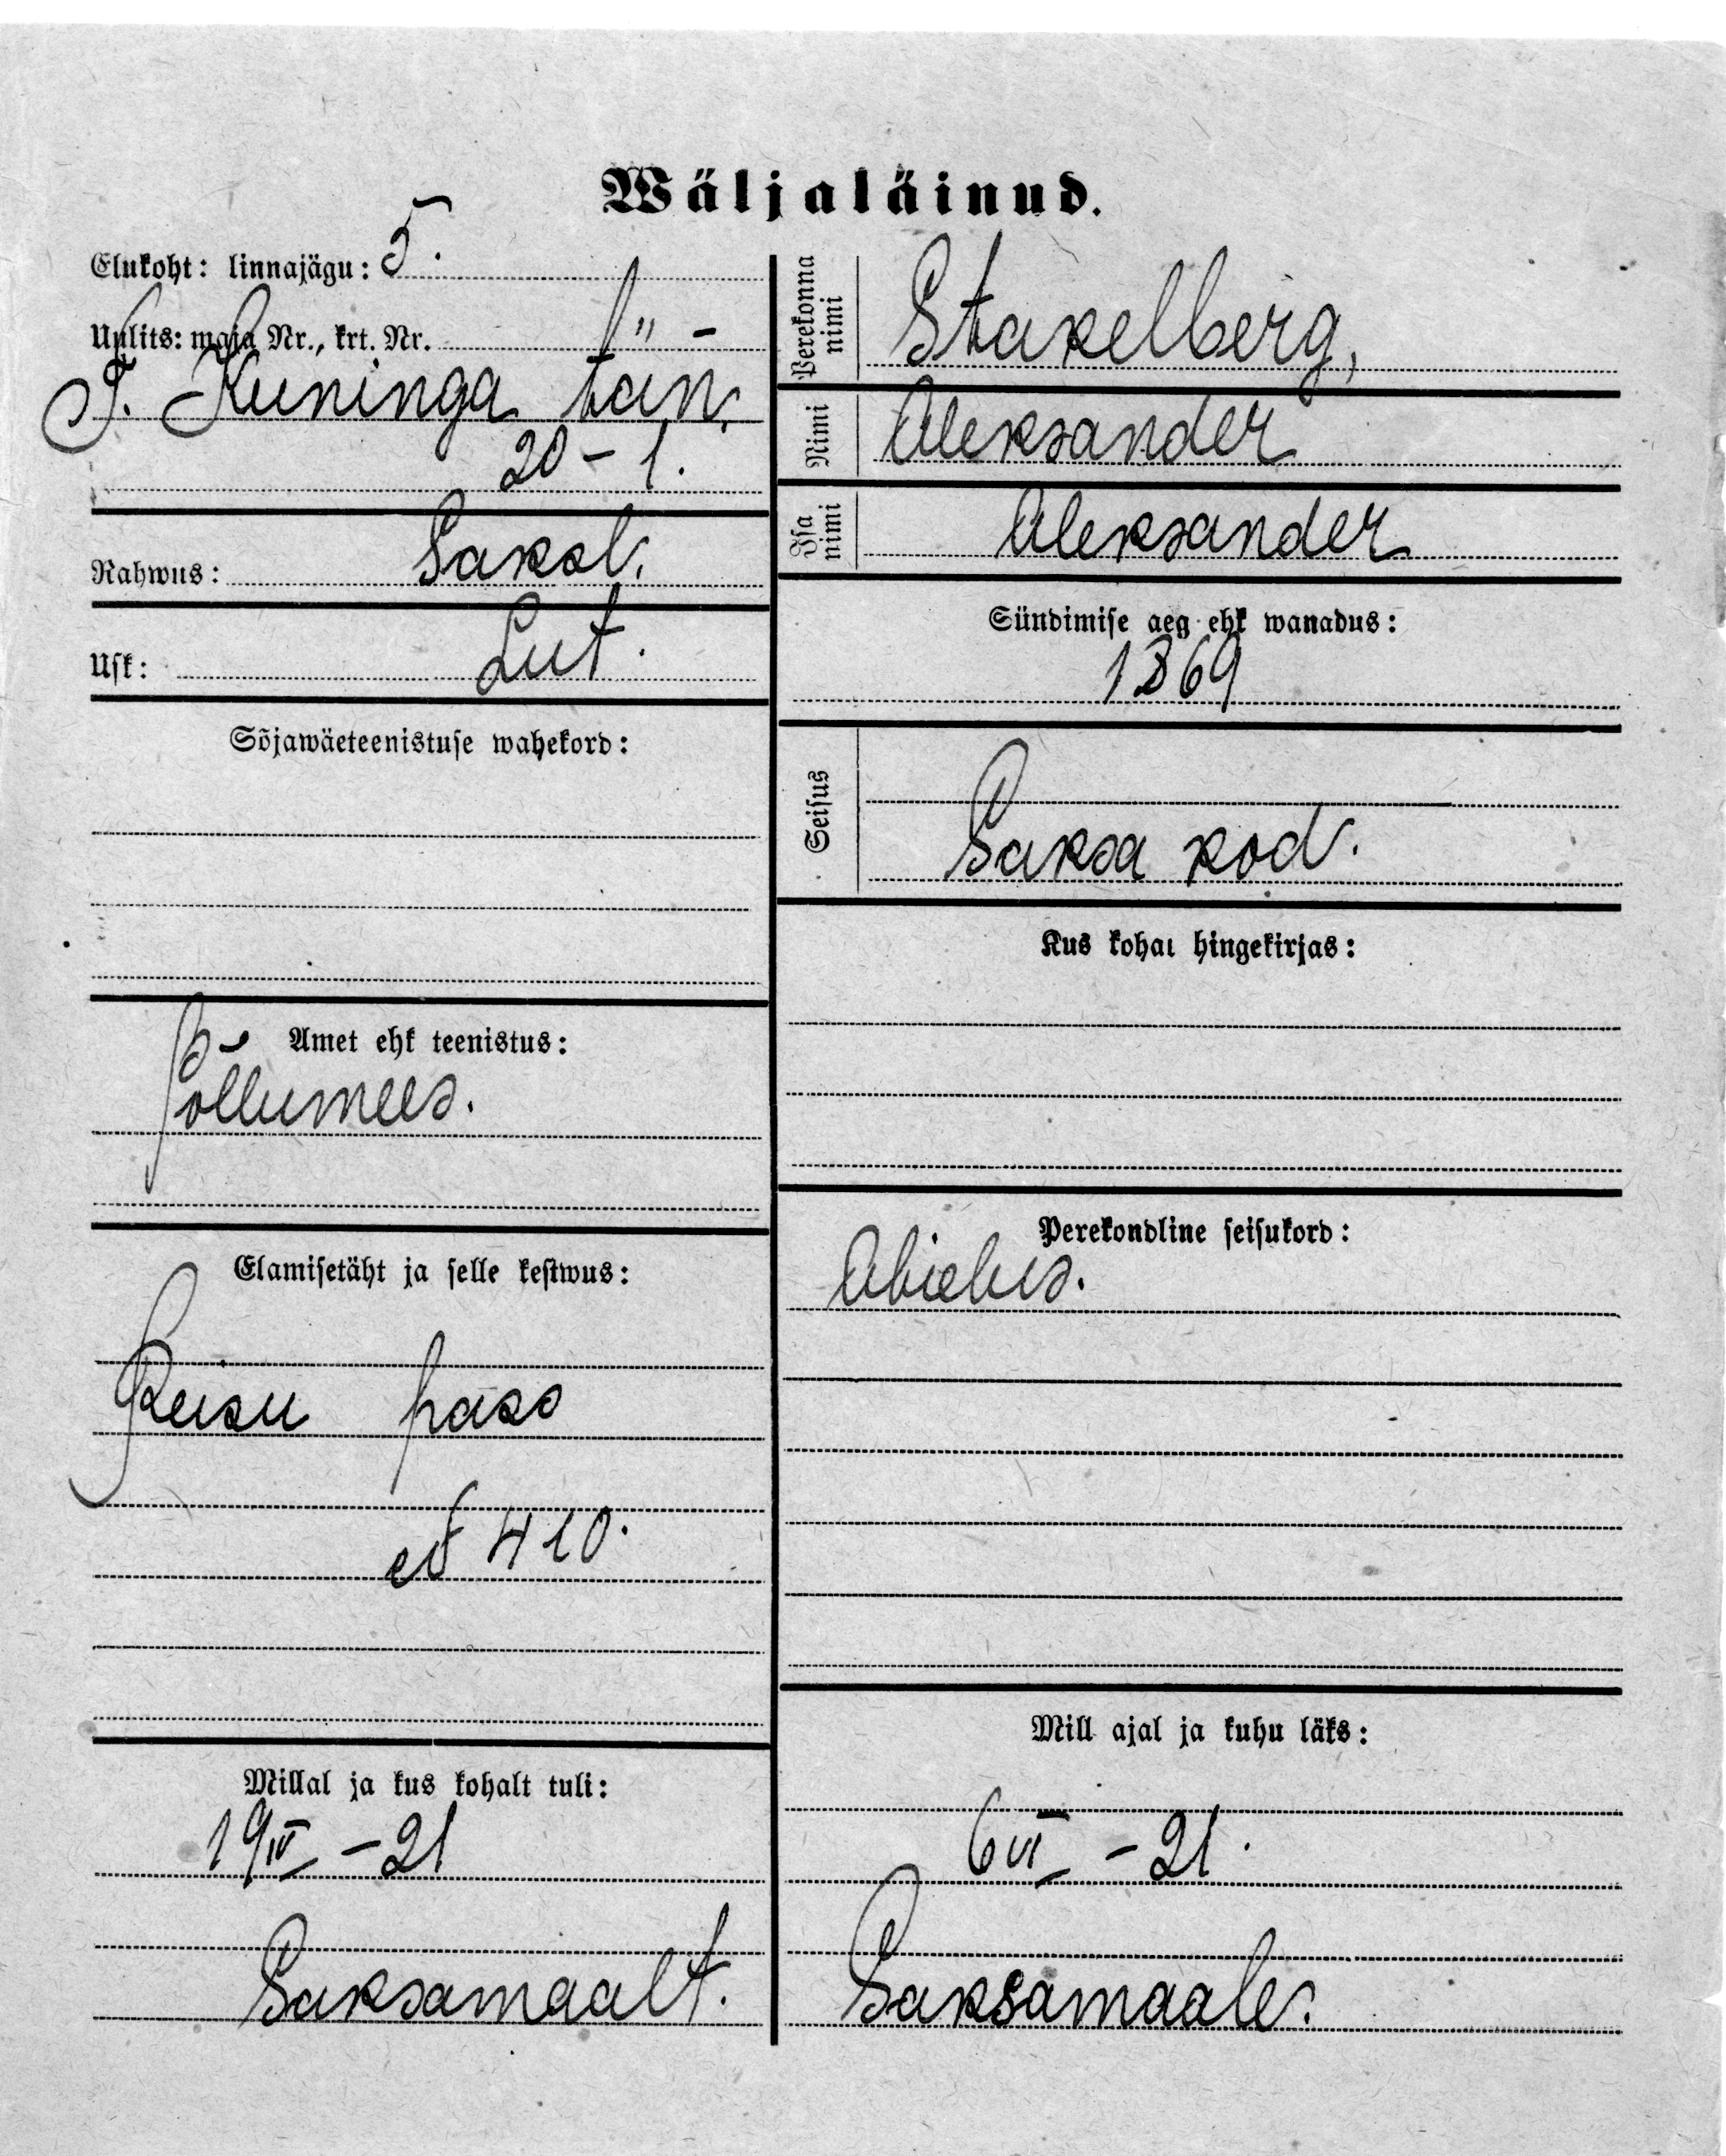 Wäljaläinud.
Elukoht: linnajägu: 5.
Uulits: maja Nr., krt. Nr.
P. Kuninga tän.
20 – 1.
Rahwus: Saksl.
Usk: Lut.
Sõjawäeteenistuse wahekord:
Amet ehk teenistus:
Põllumees.
Elamisetäht ja selle kestwus:
Reisu pass
№ 410.
Millal ja kus kohalt tuli:
19 IV – 21
Saksamaalt.
Perekonna nimi Stakelberg,
Nimi Aleksander
Isa nimi Aleksander
Sündimise aeg ehk wanadus:
1869
Seisus
Saksa kod.
Kus kohal hingekirjas:
Perekondline seisukord:
Abielus.
Mill ajal ja kuhu läks:
6 VI – 21.
Saksamaale.